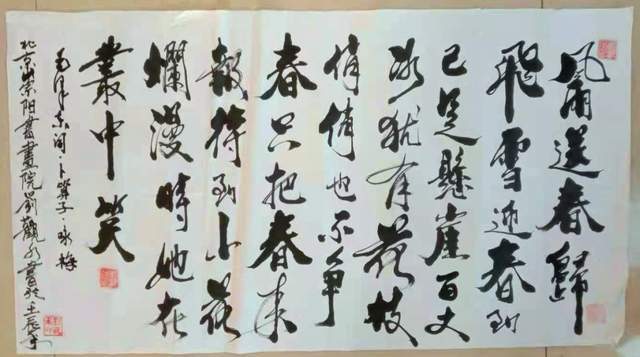 風雨送春歸
飛雪迎春到
已是懸崖百丈
冰犹有花枝
俏俏也不争
春只把春来
報待到山花
爛漫時她在
叢中笑
毛泽东词·卜算子·咏梅
北京崇阳書畫院劉觀書於壬辰年